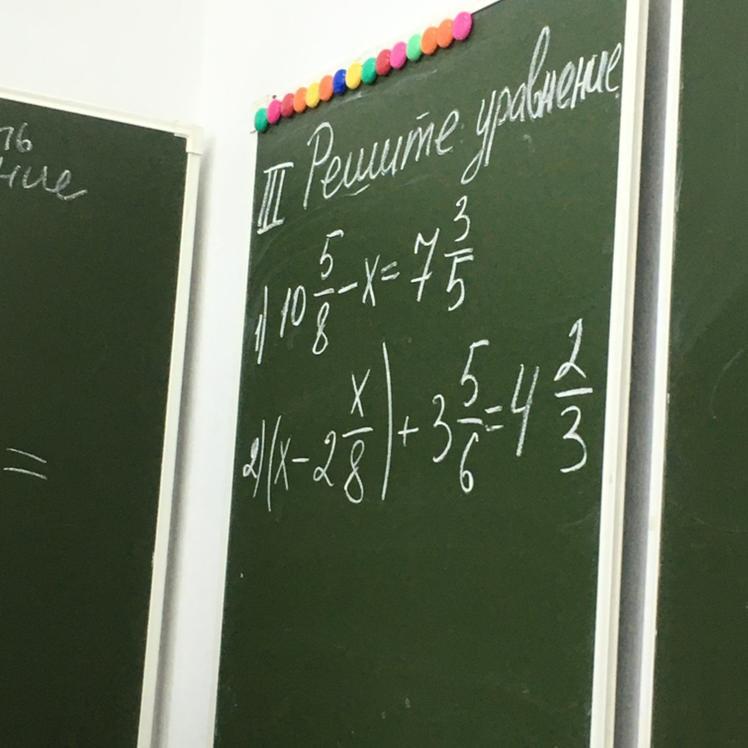 ть
ние
=
III Решите уравнение
1) 10 5/8 - x = 7 3/5
2) (x - 2 x/8) + 3 5/6 = 4 2/3